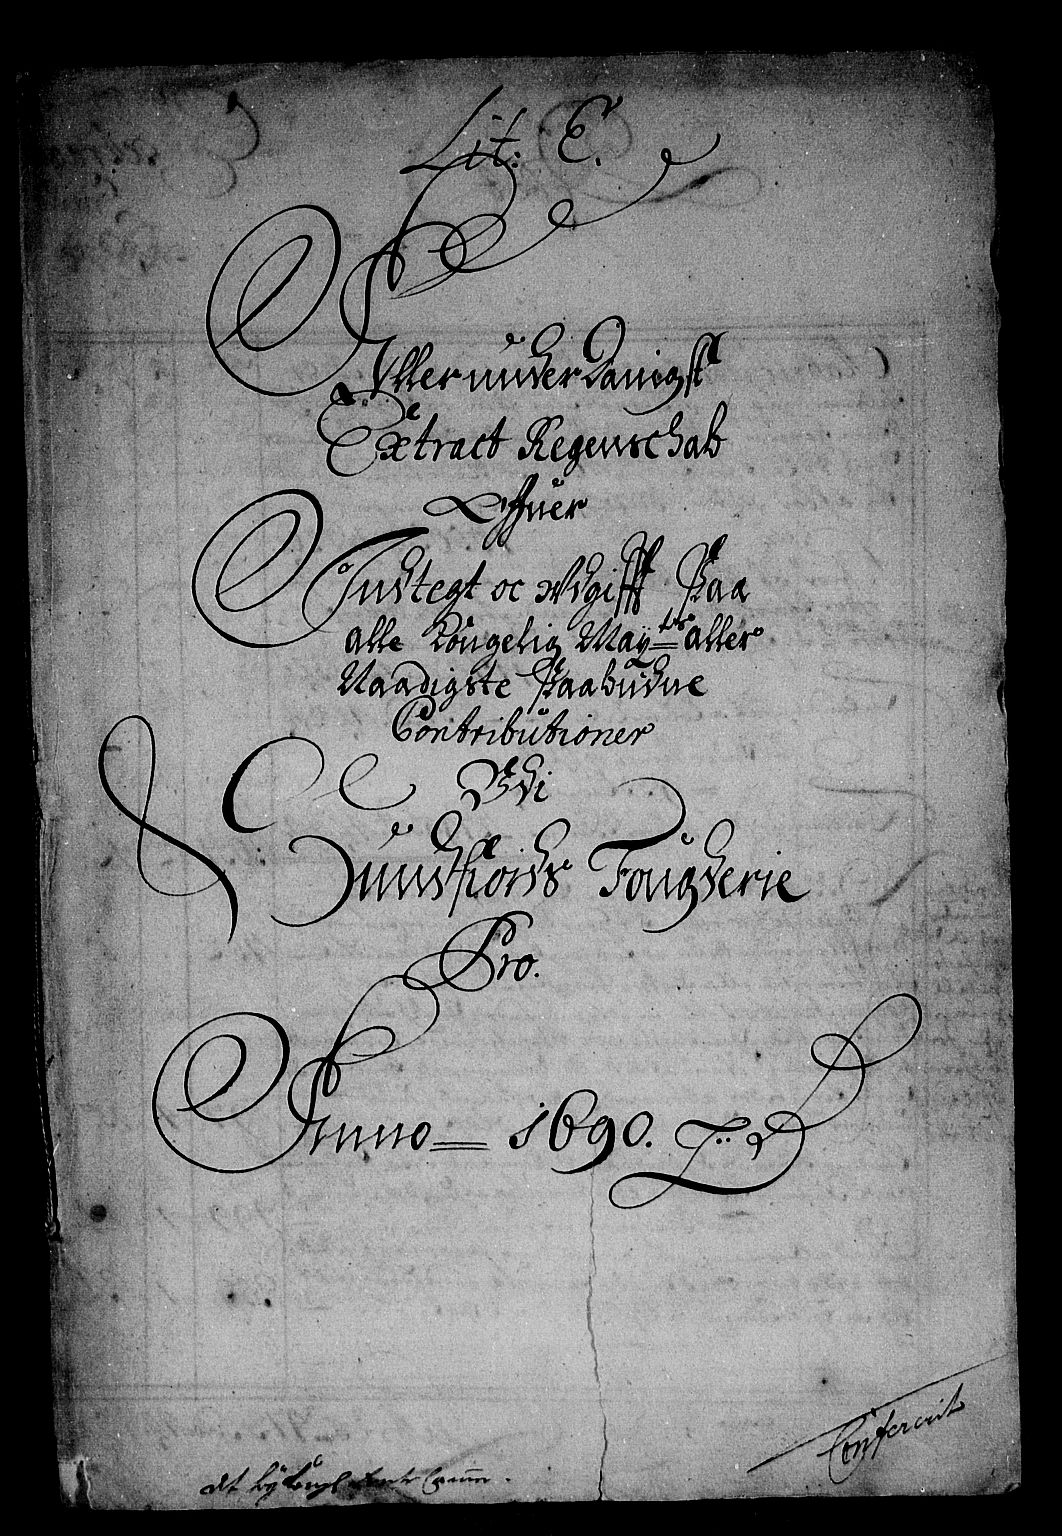 Lit: E.
Aller underdanigst
Extract Regenschab
Offuer
Indtegt oc Udgifft Paa
alle Kongelig Maytts aller
Naadigste Paabudne
Contributioner
Udi
Sundfiords Fougderie
Pro.
Anno 1690.
Confererit